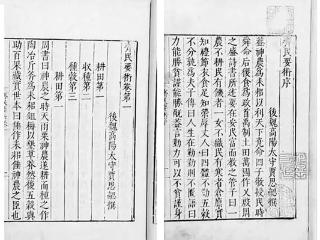 齊民要術序
後魏高陽太守賈思勰撰
蓋神農為耒耜以利天下堯命四子敬授民時
舜命后稷食為政首禹制土田萬國作乂殷周
之盛詩書所述要在安民富而教之管子曰一
農不耕民有飢者一女不織民有寒者倉廩實
知禮節衣食足知榮辱丈人曰四體不勤五穀
不分孰為夫子傳曰人生在勤勤則不匱語曰
力能勝貧謹能勝禍蓋言勤力可以不貧謹身
齊民要術卷第一
後魏高陽太守賈思勰撰
耕田第一
收種第二
種穀第三
耕田第一
周書曰神農之時天雨粟神農遂耕而種之作
陶冶斤斧為耒耜鋤耨以墾草莽然後五穀興
助百果藏實世本曰倕作耒耜倕神農之臣也